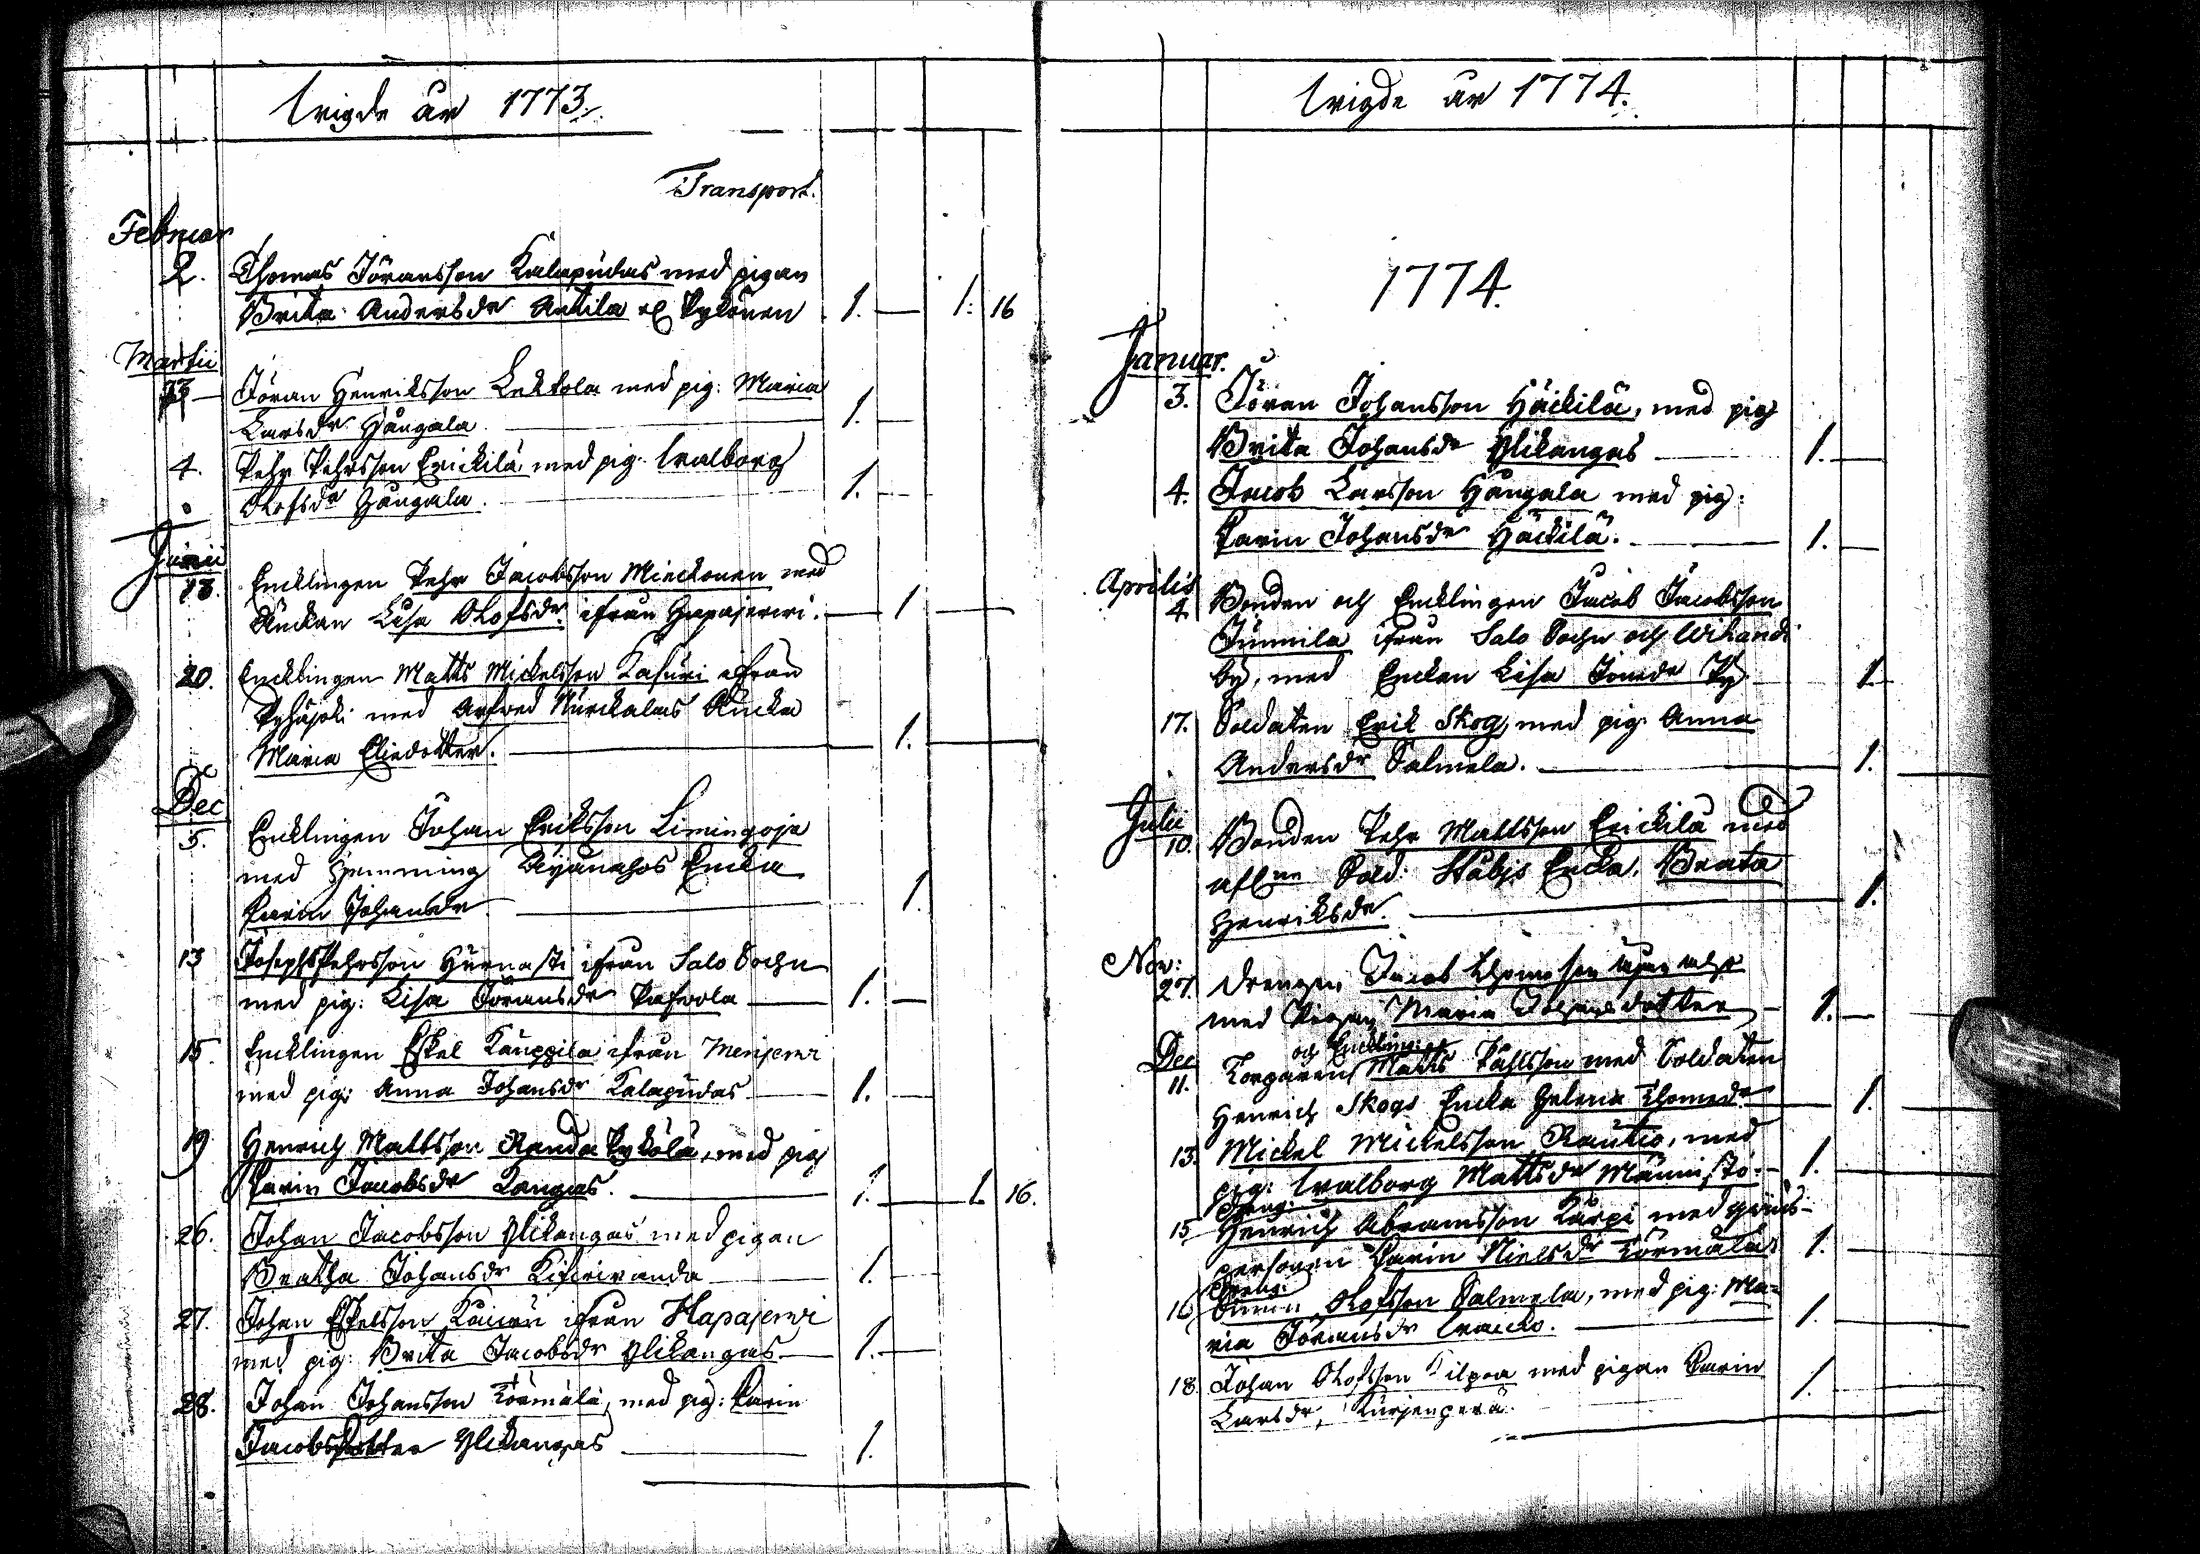 Wigde år 1773.
Transport.
Februar
2. Thomas Jöransson Kalapudas med pigan
Brita Andersdr Antila el Pykönen 1. — 1. 16
Martii
Jöran Henriksson Lektola med pig: Maria
Larsdr Hångala. — 1. —
4. Pehr Pehrsson Erickilä med pig. Walborg
Olofsdr Hångala. — 1. —
Junii
13. Encklingen Pehr Jacobsson Mieckonen med
Änckan Lisa Olofsdr ifrån Hapajerwi. — 1 —
20. Encklingen Matts Mickelsson Kasuri ifrån
Pyhäjoki med Encka
Maria Eliedotter. — 1. —
Dec
5. Encklingen Johan Eriksson Limingoja
med Hemming Enka
Carin Johansdr — 1.
13 Joseph Pehrsson ifrån Salo Sochn
med pig: Lisa Jöransdr — 1. —
15. Encklingen Eskel Kauppila ifrån Merijerwi
med pig: Anna Johansdr Kalapudas — 1. —
19 Henrich Mattsson Randa Pykölä, med pig
Carin Jacobsdr Kangas. — 1. — 1. 16.
26. Johan Jacobsson Ylikangas med pigan
Beatha Johansdr — 1. —
27. Johan Eskelsson ifrån Hapajerwi
med pig: Brita Jacobsdr Ylikangas — 1. —
28. Johan Johansson Törmälä, med pig: Carin
Jacobsdotter Ylikangas — 1.
Wigde år 1774.
1774.
Januar.
3. Jöran Johansson Häckilä, med pig
Brita Johansdr Ylikangas — 1. —
4. Jacob Larsson Hångala med pig:
Carin Johansdr Häckilä. — 1. —
Aprilis
4. Bonden och Encklingen Jacob Jacobsson
Junnila ifrån Salo Sochn och Wihandi
by, med Enckan Lisa Jönsdr — 1. —
17. Soldaten Erik Skog, med pig. Anna
Andersdr Salmela. — 1. —
Julii
10. Bonden Pehr Mattsson Erickilä med
afl. Sold: Enka, Beata
Henriksdr. — 1.
Nov:
27. Drengen Jacob Thomasson
med Pigan Maria Johansdotter — 1. —
Dec
och Enckling:
11. Korparen Matts Påhlsson med Soldaten
Henrich Skogs Encka Helena Thomsdr — 1. —
13. Mickel Mickelsson Rautio, med
pig: Walborg Mattsdr Männistö — 1. —
Dreng:
15 Henrich Abramsson Karpi med qwins-
personen Carin Nielsdr Törmälä 1. —
Dreng:
16 Simon Olofsson Salmela, med pig: Ma-
ria Jöransdr — 1. —
18. Johan Olofsson Kilpoa med pigan Carin
Larsdr, Kurjenperä. 1. —